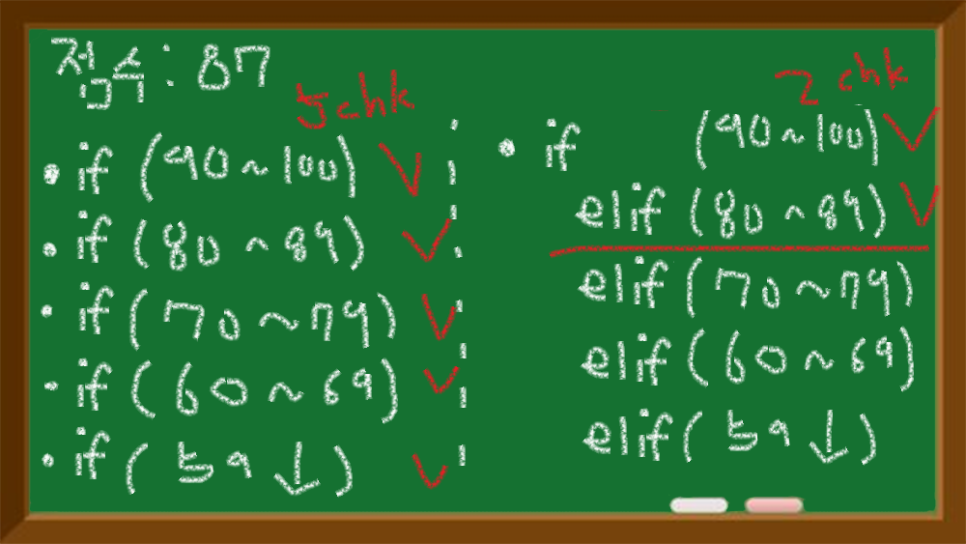 점수 : 87
5chk
• if (90~100) V
• if (80~89) V
• if (70~79) V
• if (60~69) V
• if (59↓) V
2 chk
• if (90~100) V
elif (80~89) V
elif (70~79)
elif (60~69)
elif (59↓)